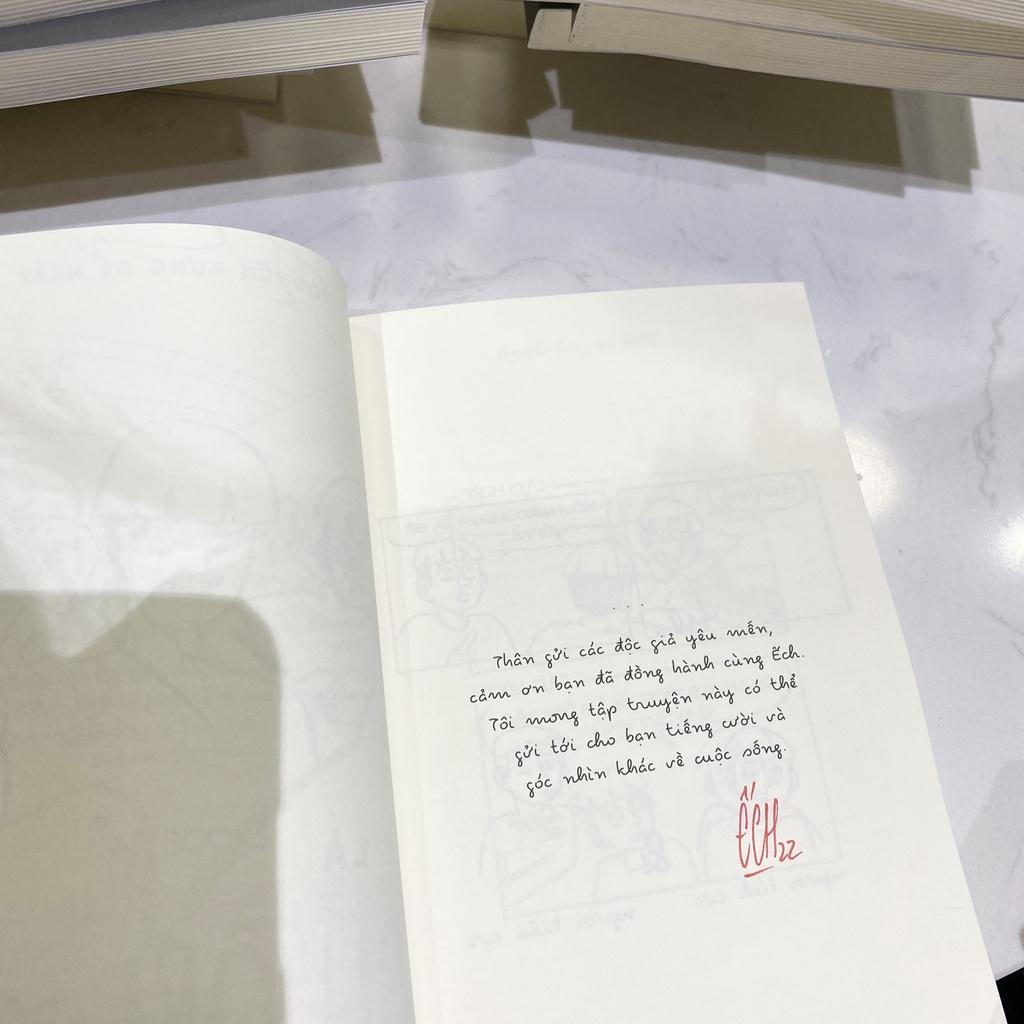 ...
Thân gửi các độc giả yêu mến,
cảm ơn bạn đã đồng hành cùng Ếch.
Tôi mong tập truyện này có thể
gửi tới cho bạn tiếng cười và
góc nhìn khác về cuộc sống.
ẾCH 22